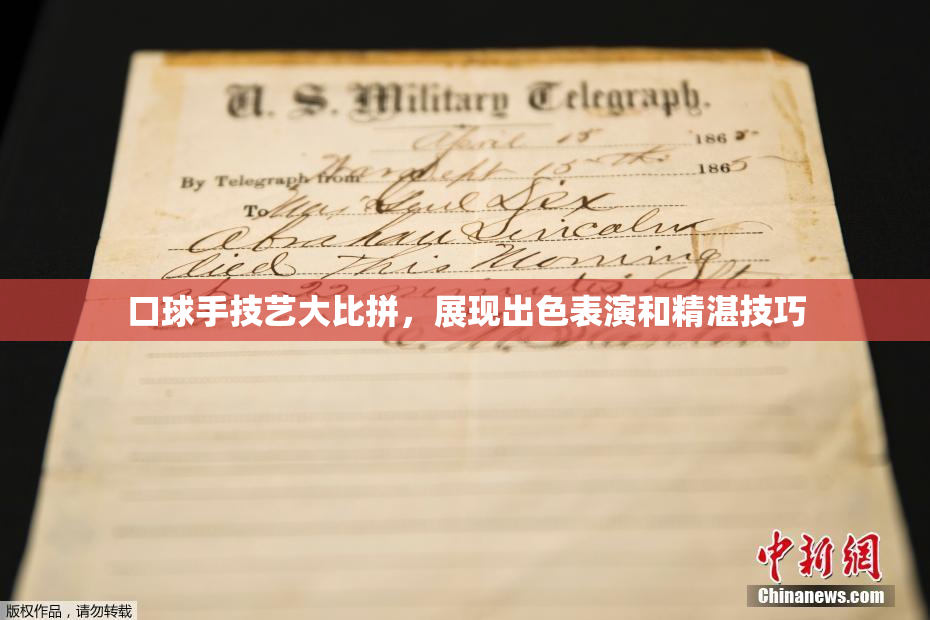 U. S. Military Telegraph.
April 15 1865
By Telegraph from War Dept 15th 1865
To Maj Genl Dix
Abraham Lincoln
died This Morning
at 22 minutes after
口球手技艺大比拼，展现出色表演和精湛技巧
E. M. Stanton
中新网
Chinanews.com
版权作品，请勿转载